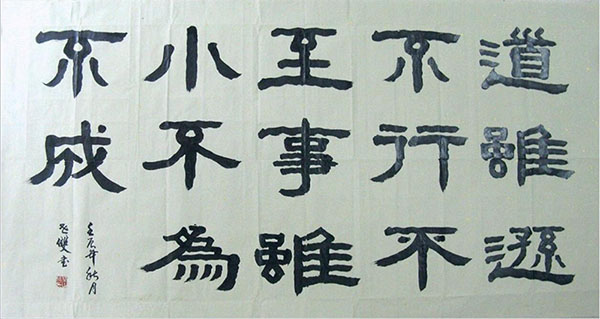 道雖遜
不行不
至事雖
小不為
不成
壬辰年秋月
雙書